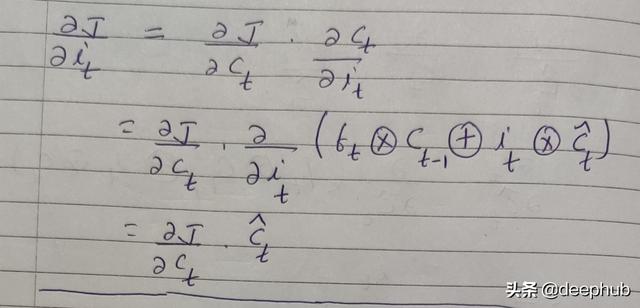 ∂J/∂i_t = ∂J/∂C_t · ∂C_t/∂i_t
= ∂J/∂C_t · ∂/∂i_t (f_t ⊗ C_{t-1} ⊕ i_t ⊗ Ĉ_t)
= ∂J/∂C_t · Ĉ_t
头条 @deephub